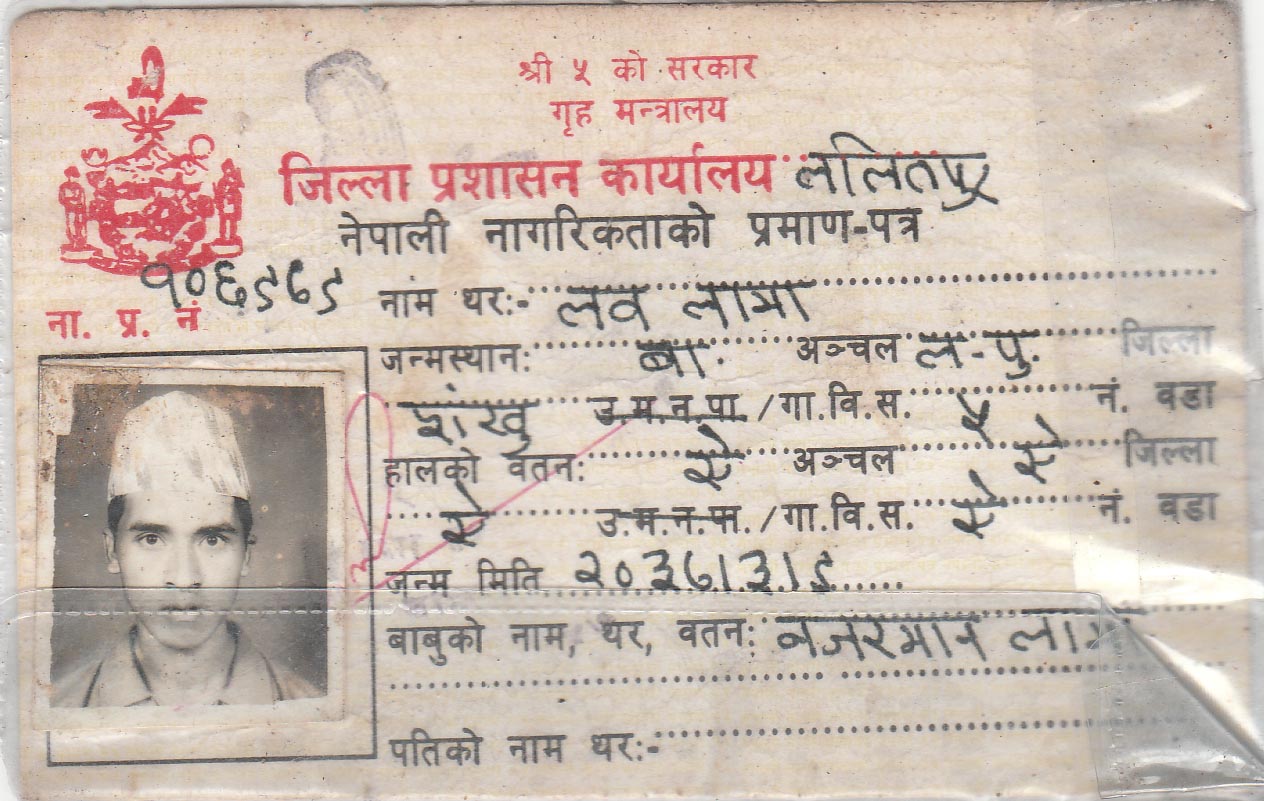 श्री ५ को सरकार
गृह मन्त्रालय
जिल्ला प्रशासन कार्यालय ललितपुर
नेपाली नागरिकताको प्रमाण-पत्र
ना. प्र. नं १०६९८९
नाम थर:- लव लामा
जन्मस्थान: बा. अञ्चल ल.पु. जिल्ला
शंखु उ.म.न.पा./गा.वि.स. ५ नं. वडा
हालको वतन: ऐ अञ्चल ऐ जिल्ला
ऐ उ.म.न.पा./गा.वि.स. ऐ नं. वडा
जन्म मिति २०३८।३।९
बाबुको नाम, थर, वतन: लामा
पतिको नाम थर:-